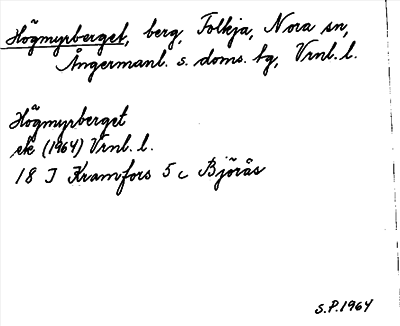 Högmyrberget, berg, Folkja, Nora sn,
Ångermanl. s. doms. tg, Vrnl. l.
Högmyrberget
ek (1964) Vrnl. l.
18 I Kramfors 5 c Björås
S.P. 1964